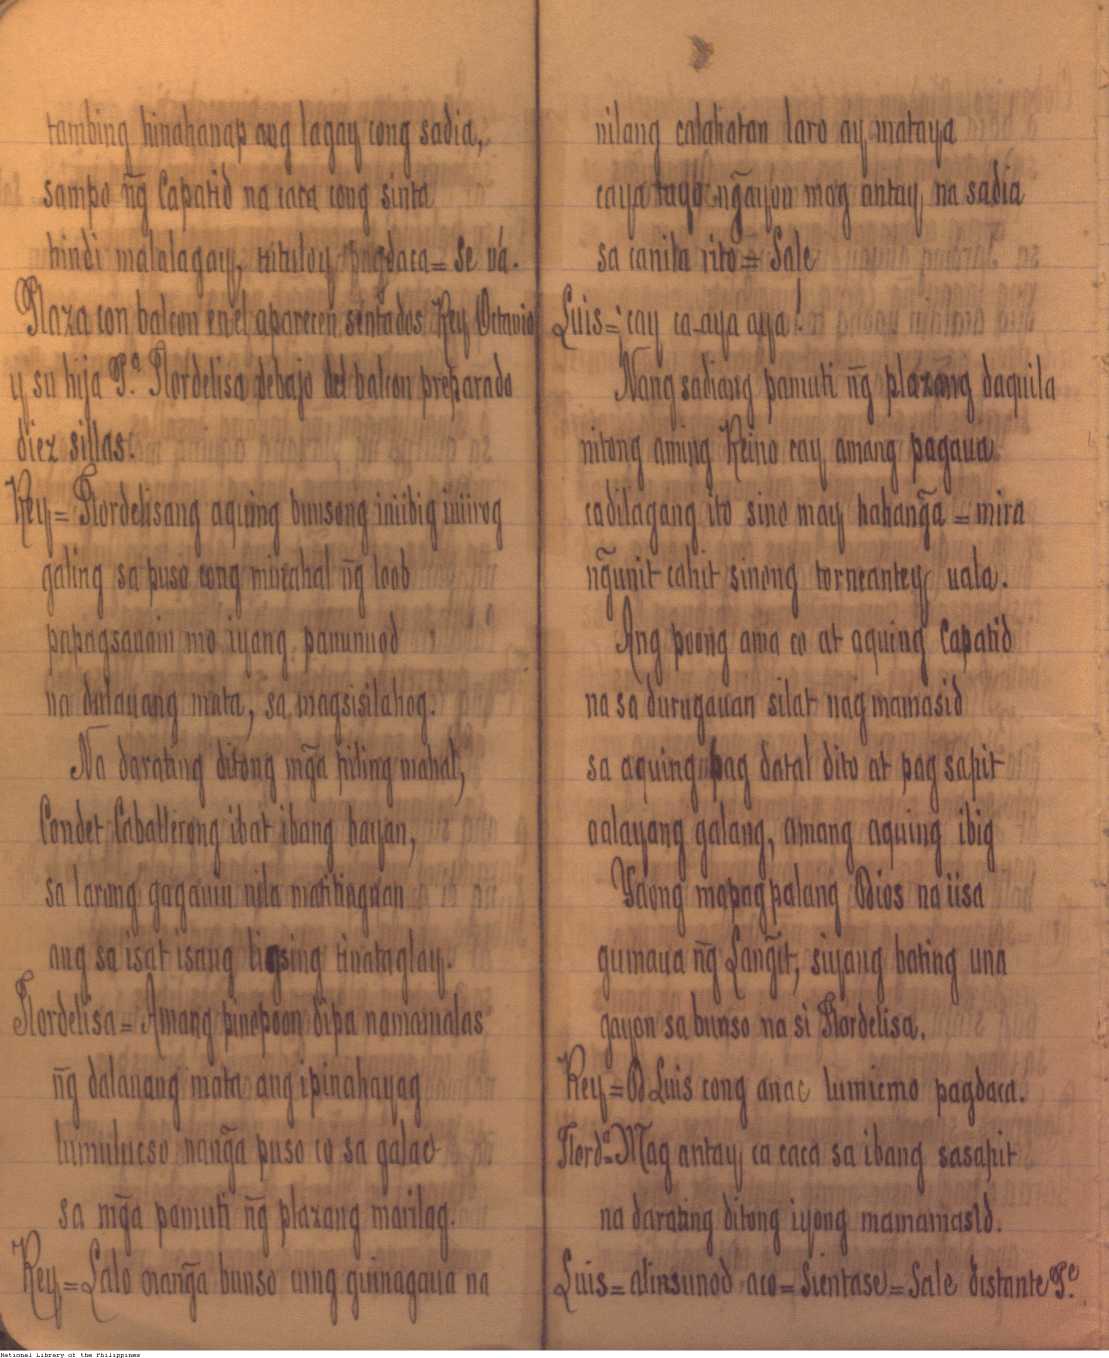 tambing hinahanap ang lagay cong sadia,
sampo n̄g Capatid na caca cong sinta
hindi malalagay, tutuloy pagdaca = Se vá.
Plaza con balcon en el aparecen sentados Rey Octavio
y su hija P.ª Flordelisa debajo del balcon preparado
diez sillas.
Rey = Flordelisang aquing bunsong iniibig iniirog
galing sa puso cong mutahal n̄g loob
papagsauain mo iyang panunuod
na dalauang mata, sa magsisilahog.
Na darating ditong mg̃a piling mahal,
Condet Caballerong ibat ibang bayan,
sa larong gagauin nila matitingnan
ang sa isat isang ligsing tinataglay.
Flordelisa = Amang pinopoon dipa namamalas
n̄g dalauang mata ang ipinahayag
lumulucso nang̃a puso co sa galac
sa mg̃a pamuti n̄g plazang marilag.
Rey = Lalo nang̃a bunso cung guinagaua na
nilang calahatan laro ay mataya
caya tayo ng̃ayon mag antay, na sadia
sa canila rito = Sale
Luis = ¡cay ca-aya aya!
Nang sadiang pamuti n̄g plazang daquila
nitong aming Reino cay amang pagaua
cadilagang ito sino may hahang̃a = mira
ng̃unit cahit sinong torneantey uala.
Ang poong ama co at aquing Capatid
na sa durugauan silat nag mamasid
sa aquing pag datal dito at pag sapit
aalayang galang, amang aquing ibig
Yaong mapagpalang Dios na iisa
gumaua n̄g Lang̃it, siyang bating una
gayon sa bunso na si Flordelisa.
Rey = D Luis cong anac lumicmo pagdaca.
Flord.ª = Mag antay ca caca sa ibang sasapit
na darating ditong iyong mamamasid.
Luis = alinsunod aco = Sientase = Sale distante P.e
National Library of the Philippines